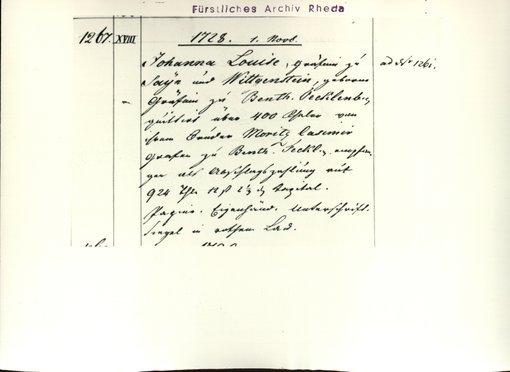 Fürstliches Archiv Rheda
1267. XVIII 1728. 1. Novb.
Johanna Louise, Gräfinn zu ad No 1261.
Sayn und Wittgenstein, geborne
Gräfinn zu Benth. Tecklenbg,
quittirt über 400 Thler von
ihrem Bruder Moritz Casimir
Grafen zu Benth. Teckl., empfan-
gen als Abschlagszahlung auf
924 Thlr Capital.
Papier. Eigenhänd. Unterschrift.
Siegel in rothem Lack.